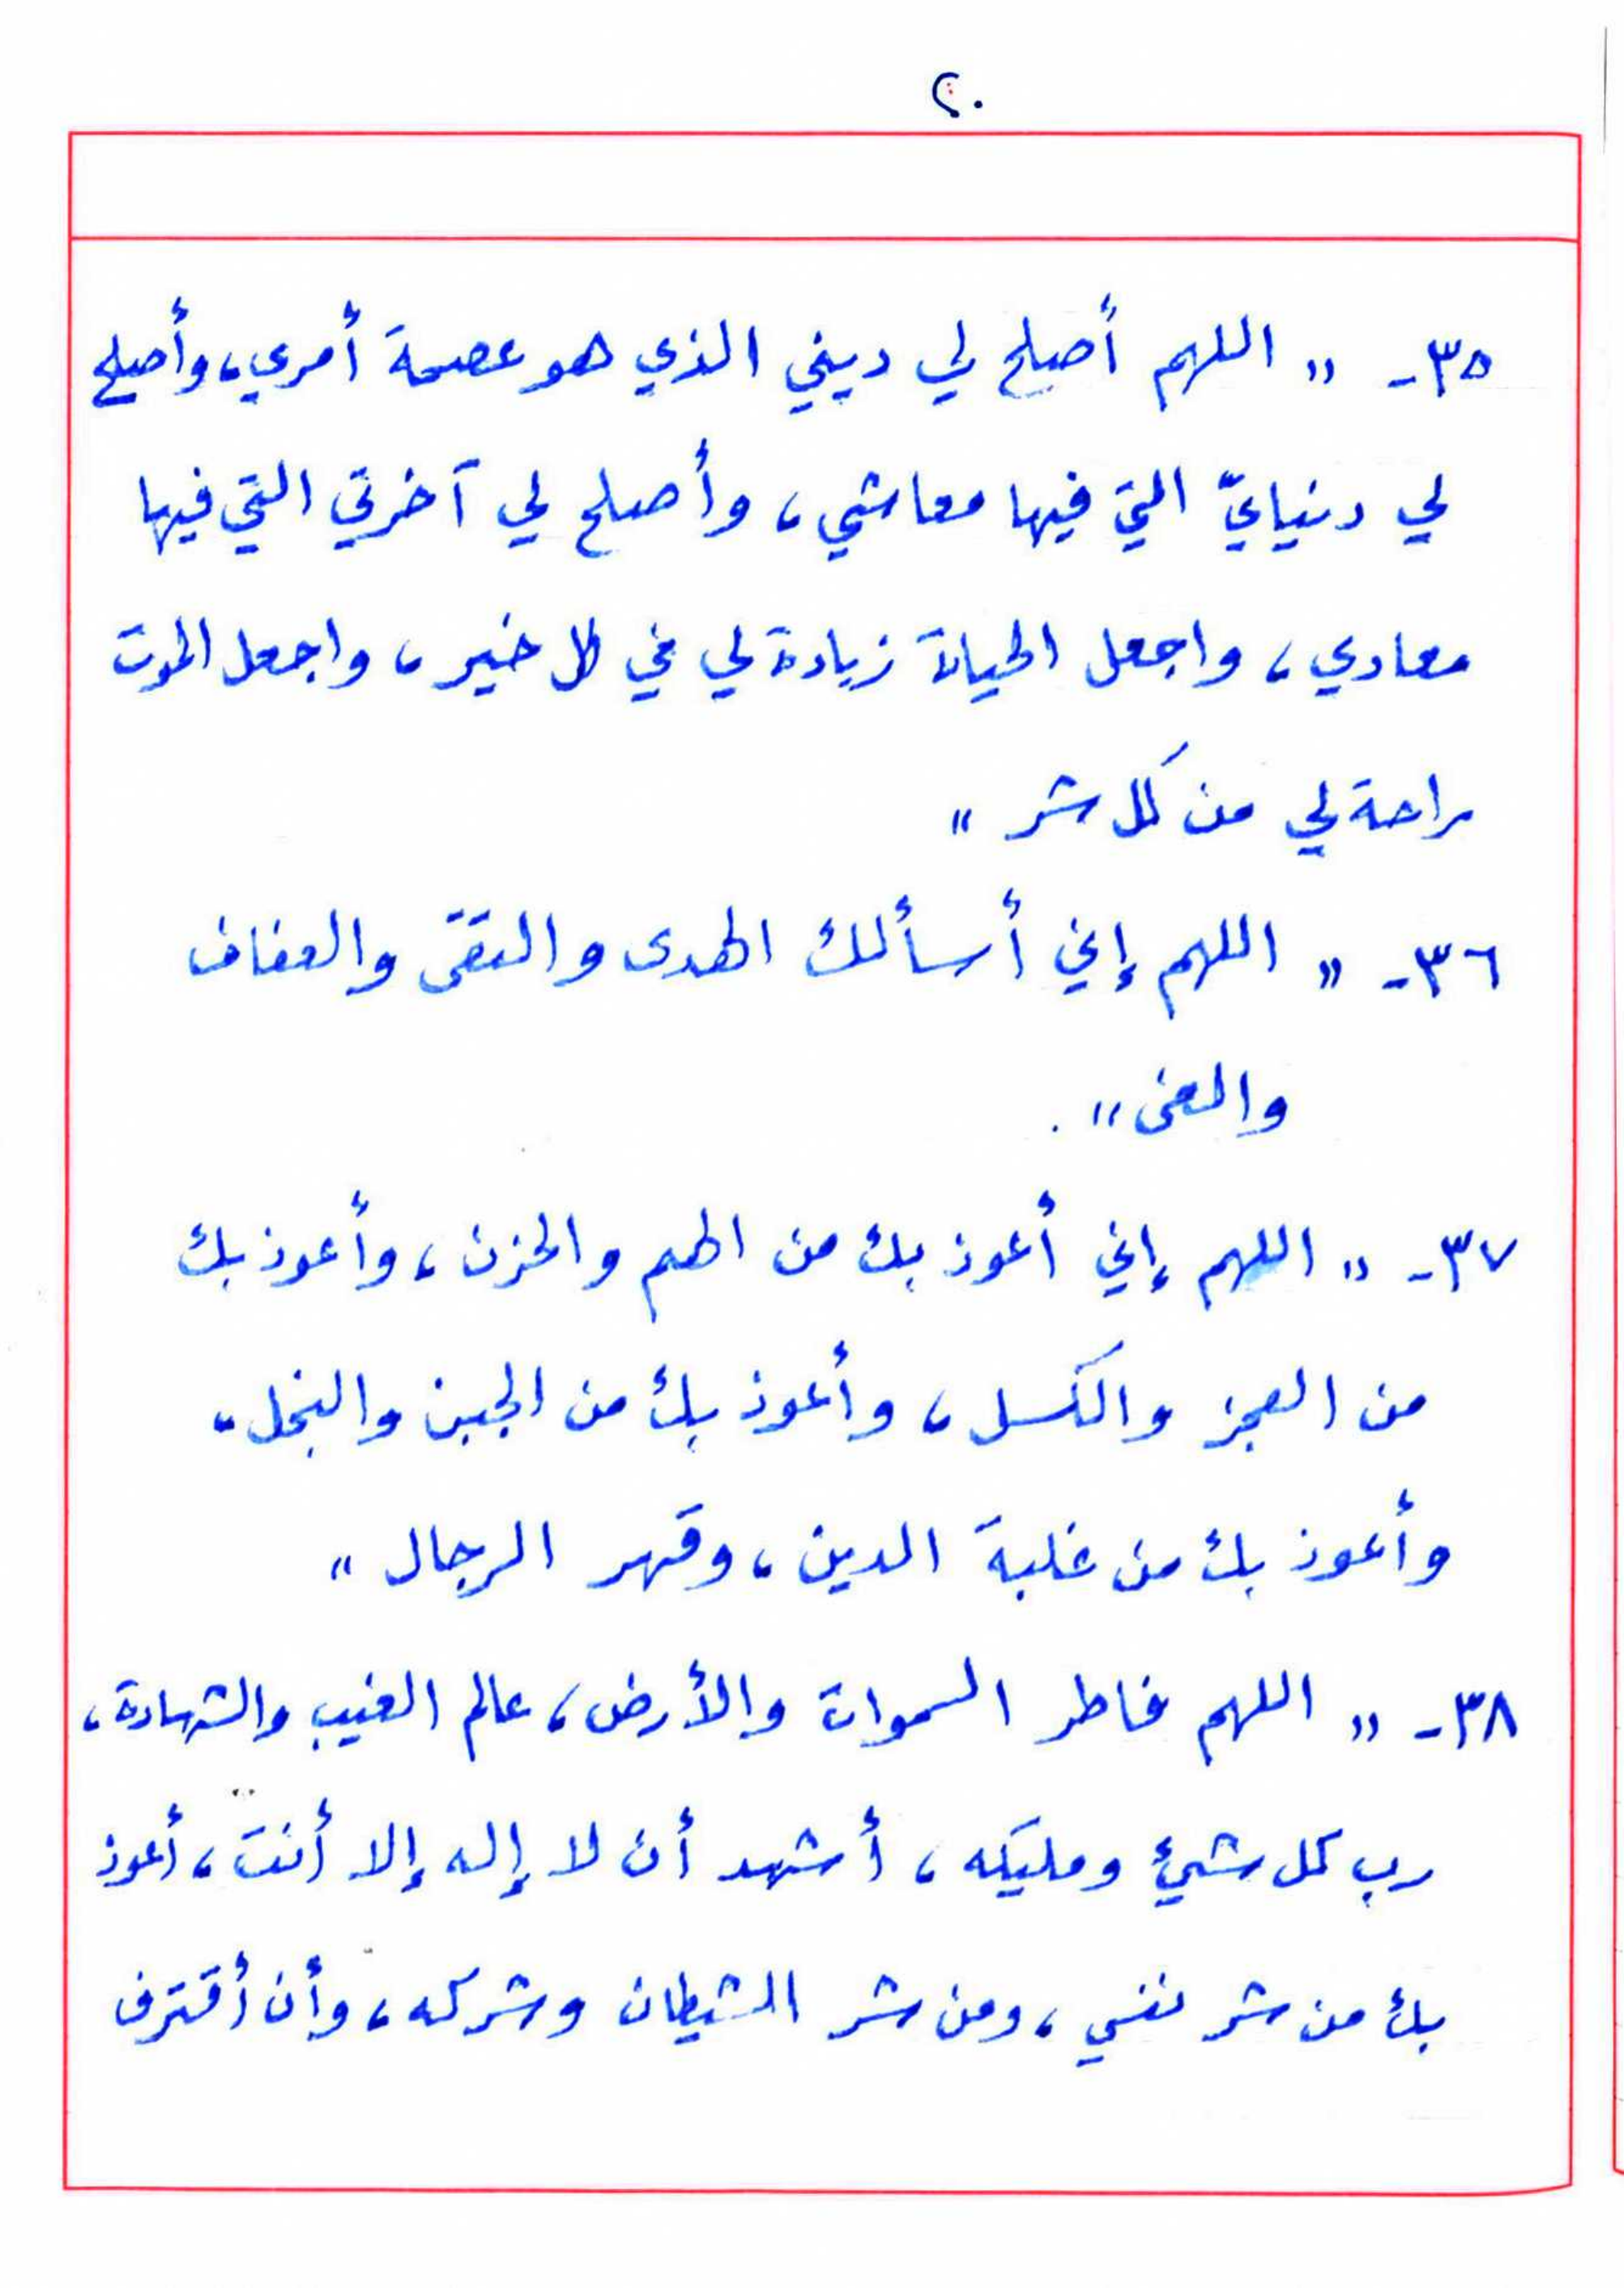 ٢٠
٣٥- " اللهم أصلح لي ديني الذي هو عصمة أمري، وأصلح
لي دنيايّ التي فيها معاشي، وأصلح لي آخرتي التي فيها
معادي، واجعل الحياة زيادة لي في كل خير، واجعل الموت
راحة لي من كل شر "
٣٦- " اللهم إني أسألك الهدى والتقى والعفاف
والغنى ".
٣٧- " اللهم إني أعوذ بك من الهم والحزن، وأعوذ بك
من العجز والكسل، وأعوذ بك من الجبن والبخل،
وأعوذ بك من غلبة الدين، وقهر الرجال "
٣٨- " اللهم فاطر السموات والأرض، عالم الغيب والشهادة،
رب كل شيء ومليكه، أشهد أن لا إله إلا أنت، أعوذ
بك من شر نفسي، ومن شر الشيطان وشركه، وأن أقترف